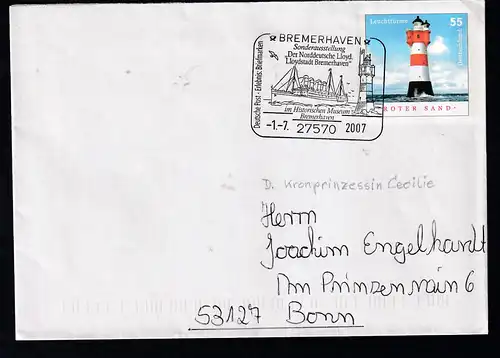 BREMERHAVEN
Sonderausstellung
„Der Norddeutsche Lloyd.
Lloydstadt Bremerhaven“
im Historischen Museum
Bremerhaven
-1.-7. 27570 2007
Deutsche Post · Erlebnis: Briefmarken
Leuchttürme
55
Deutschland
ROTER SAND
D. Kronprinzessin Cecilie
Herrn
Joachim Engelhardt
Am Prinzenrain 6
53127 Bonn